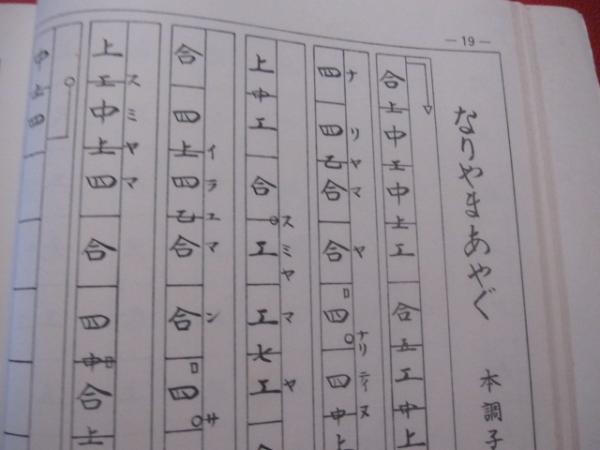 —19—
なりやまあやぐ
本調子
合上中工中上工合五工中上
四四乙合合四四中上
ナリヤマヤナリティヌ
上中工合工工七工合
スミヤマヤ
合四上四乙合合四
イラユマンサ
上工中上四合四中合上
スミヤマ
中上四